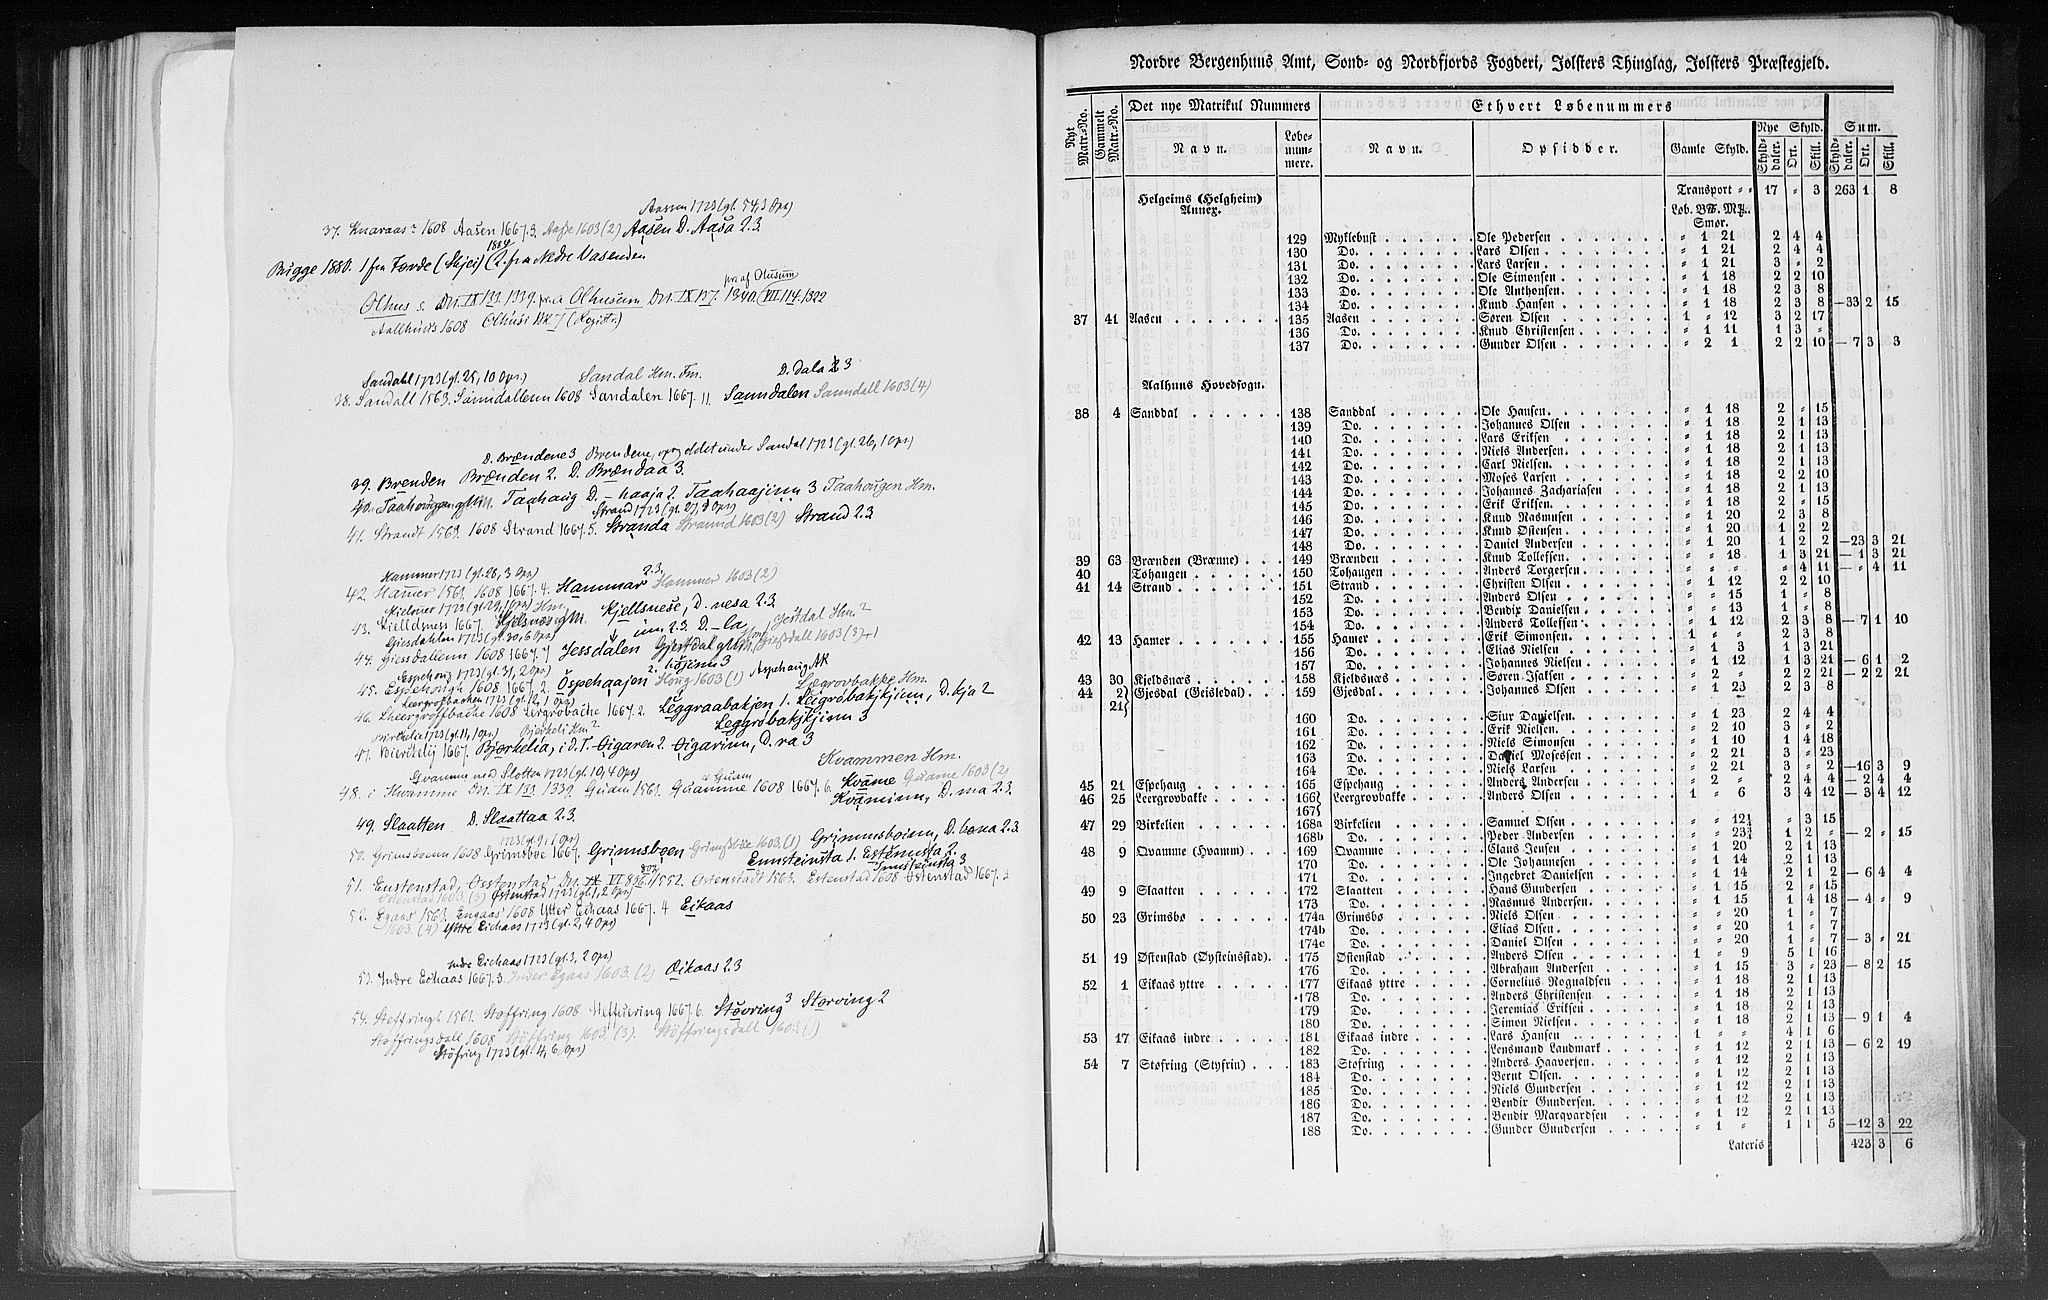 Aasen 1723 (gl. 54, 3 Ops)
37. Knaraas? 1608 Aasen 1667. 3. Aaße 1603 (2) Aasen D. Aasa 2.3.
Bugge 1880. 1 fra Førde (Skjei) (2. fra Nedre Vasenden
1884
pr. af Olusum
Olhus s. Dn. IX 133. 1339. pr. a Olhusum Dn. IX 137. 1340. (VII 114. 1322
Aallhuus 1608 Olhusi BK 7 (Regist.)
Sandahl 1723 (gl. 25, 10 Ops.) Sandal Hm. Fm. D. dala 2 3
38. Sandall 1563. Sanndallenn 1608 Sandalen 1667. 11. Sanndalen Sanndall 1603 (4)
D. Brændene 3 Brendene, opryddet under Sandal 1723 (gl. 26, 1 Ops)
39. Brenden Brænden 2. D. Brændaa 3.
40. Taahougen Taahaug D. - haaja 2. Taahaajinn 3 Taahougen Hm.
Strand 1723 (gl. 27, 3 Ops)
41. Strandt 1563. 1608 Strand 1667. 5. Stranda Straund 1603 (2) Strand 2.3
Hammer 1723 (gl. 28, 3 Ops)
42. Hamer 1561. 1608 1667. 4. Hammar 2.3, Hammer 1603 (2)
43. Kielldsness 1667. Kjellsnese, D. nesa 2.3.
Giesdahlen 1723 (gl. 30, 6 Ops) inn, 2.3. D. - la Jestdal Hm. 2
44. Giesdallenn 1608 1667. 7 Jessdalen Gjestdal Giesdall 1603 (3)
Espehoug 1723 (gl. 31, 2 Ops) Aspehaug AK
45. Espehough 1608 1667. 2. Ospehaajen Houg 1603 (1) Lægrovbakke Hm.
Leergrofbachen 1723 (gl. 12, 1 Ops)
46. Lheergroffbache 1608 Lergrobache 1667. 2. Leggraabakjen 1. Leigrobakjkjinn, D. kja 2
Leggrobakjkjinn 3
Birkelie 1723 (gl. 11, 1 Ops) Bjørkeli Hm. 2
47. Bierchelij 1667. Bjørkelia, i D. T. Oigaren 2. Oigarinn, D. ra 3
Qvamme med Slotten 1723 (gl. 10, 4 Ops) Kvammen Hm.
48. i Hvamme Dn. IX 133. 1339. Quam 1561. Quamme 1608 1667. 6. Kvåme Quame 1603 (2)
Kvåminn, D. ma 2.3.
49. Slaatten D. Slaattaa 2.3.
1723 (gl. 9, 1 Ops)
50. Grimsboenn 1608 Grimsbøe 1667. Grimsbøen Grimßbøe 1603. (1) Grimmsbøinn, D. bøna 2.3.
Ennsteinsta 1. Estennsta 2.
51. Enstenstad, Osstenstad Dn. VI 802 1552. Ostenstadt 1563. Estenstad 1608 Ostenstad 1667. 3
Ostenstad 1603. (3) Østenstad 1723 (gl. 1, 2 Ops)
52. Egaas 1563. Engaas 1608 Ytter Eichaas 1667. 4 Eikaas
1603. (4) Yttre Eichaas 1723 (gl. 2, 4 Ops)
Indre Eichaas 1723 (gl. 3, 2 Ops)
53. Indre Eichaas 1667. 3. Inder Egaas 1603. (2) Oikaas 2.3
54. Steffringh 1561. Stoffring 1608 Steffuering 1667. 6. Støvring 3 Størving 2
Stoffringsdall 1608 Stöffring 1603. (3). Stöffringsdall 1603. (1)
Støfring 1723 (gl. 4, 6 Ops)
Nordre Bergenhuus Amt, Sond- og Nordfjords Fogderi, Jolsters Thinglag, Jolsters Præstegjeld.
Nyt Matr.-No. Gammelt Matr.-No. Det nye Matrikul Nummers Ethvert Løbenummers
Navn. Løbenummere. Navn. Opsidder. Gamle Skyld. Nye Skyld. Skylddaler. Ort. Skill. Sum. Skylddaler. Ort. Skill.
Transport = = 17 = 3 263 1 8
Helgeims (Helgheim) Annex. Løb. Bß. Mk. Smør.
129 Myklebust Ole Pedersen = 1 21 2 4 4
130 Do. Lars Olsen = 1 21 2 4 4
131 Do. Lars Larsen = 1 21 3 = 2
132 Do. Ole Simonsen = 1 18 2 2 10
133 Do. Ole Anthonsen = 1 18 2 3 8
134 Do. Knud Hansen = 1 18 2 3 8 —33 2 15
37 41 Aasen 135 Aasen Søren Olsen 1 = 12 3 2 17
136 Do. Knud Christensen = 1 11 1 3 =
137 Do. Gunder Olsen = 2 1 2 2 10 —7 3 3
Aalhuus Hovedsogn.
38 4 Sanddal 138 Sanddal Ole Hansen = 1 18 2 = 15
139 Do. Johannes Olsen = 1 18 2 1 13
140 Do. Lars Eriksen = 1 18 2 1 13
141 Do. Niels Andersen = 1 18 2 1 13
142 Do. Carl Nielsen = 1 18 2 1 13
143 Do. Moses Larsen = 1 18 2 2 10
144 Do. Johannes Zachariasen = 1 18 2 1 13
145 Do. Erik Eriksen = 1 18 2 = 15
146 Do. Knud Rasmusen = 1 20 2 3 8
147 Do. Knud Ostensen = 1 20 1 2 2
148 Do. Daniel Andersen = 1 20 1 2 2 —23 3 21
39 63 Brænden (Brænne) 149 Brænden Knud Tollefsen = = 18 1 3 21 —1 3 21
40 Tohaugen 150 Tohaugen Anders Torgersen = = = = 4 11 —= 4 11
41 14 Strand 151 Strand Christen Olsen = 1 12 2 2 10
152 Do. Anders Olsen = = 15 1 = 8
153 Do. Bendix Danielsen = = 13 1 = 8
154 Do. Anders Tollefsen = 1 12 2 3 8 —7 1 10
42 13 Hamer 155 Hamer Erik Simonsen 1 = = 2 3 8
156 Do. Elias Nielsen = 1 3 1 3 21
157 Do. Johannes Nielsen = 1 12 1 3 21 —6 1 2
43 30 Kjeldsnæs 158 Kjeldsnæs Søren Isaksen = 2 = 2 2 21 —2 2 21
44 2 21} Gjesdal (Geisledal) 159 Gjesdal Johannes Olsen = 1 23 2 3 8
160 Do. Siur Danielsen = 1 23 2 4 4
161 Do. Erik Nielsen = 2 10 3 = 2
162 Do. Niels Simonsen = 1 10 1 4 18
163 Do. Daniel Mosessen = 2 21 3 = 23
164 Do. Niels Larsen = 2 21 3 = 2 —16 3 9
45 21 Espehaug 165 Espehaug Anders Andersen = 2 = 2 4 4 —2 4 4
46 25 Leergrovbakke 166 167} Leergrovbakke Anders Olsen 1 = 6 3 4 12 —3 4 12
47 29 Birkelien 168a Birkelien Samuel Olsen = = 12¼ = 3 15
168b Do. Peder Andersen = = 23¾ 1 2 = —2 = 15
48 9 Qvamme (Hvamm) 169 Qvamme Claus Jensen = 1 20 2 1 13
170 Do. Ole Johannesen = 1 14 2 1 13
171 Do. Ingebret Danielsen = 1 14 2 1 2 —6 4 4
49 9 Slaatten 172 Slaatten Hans Gundersen = 1 15 2 = 15
173 Do. Rasmus Andersen = 1 15 1 4 18 —4 = 9
50 23 Grimsbø 174a Grimsbø Niels Olsen = = 20 1 = 7
174b Do. Elias Olsen = = 20 1 = 7
174c Do. Daniel Olsen = = 20 1 = 7 —3 = 21
51 19 Østenstad (Øysteinstad) 175 Østenstad Anders Olsen 1 = 9 5 1 16
176 Do. Abraham Andersen = 1 15 3 = 23 —8 2 15
52 1 Eikaas yttre 177 Eikaas yttre Cornelius Rognaldsen = 1 18 2 1 13
178 Do. Anders Christensen = 1 18 2 1 13
179 Do. Jeremias Eriksen = 1 18 2 1 13
180 Do. Simon Nielsen = 1 18 2 1 13 —9 1 4
53 17 Eikaas indre 181 Eikaas indre Lars Hansen 1 = = 4 1 6
182 Do. Lensmand Landmark = 1 12 2 1 13 —6 2 19
54 7 Støfring (Styfrin) 183 Støfring Anders Haaversen = 1 12 2 1 13
184 Do. Bernt Olsen = 1 12 2 1 13
185 Do. Niels Gundersen = 1 12 2 1 13
186 Do. Bendix Gundersen = 1 12 2 1 13
187 Do. Bendix Marqvardsen = 1 12 2 1 13
188 Do. Gunder Gundersen = 1 = 1 1 5 —12 3 22
Lateris 423 3 6